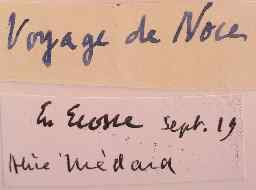 Voyage de Noce
En Ecosse Sept. 19
Médard